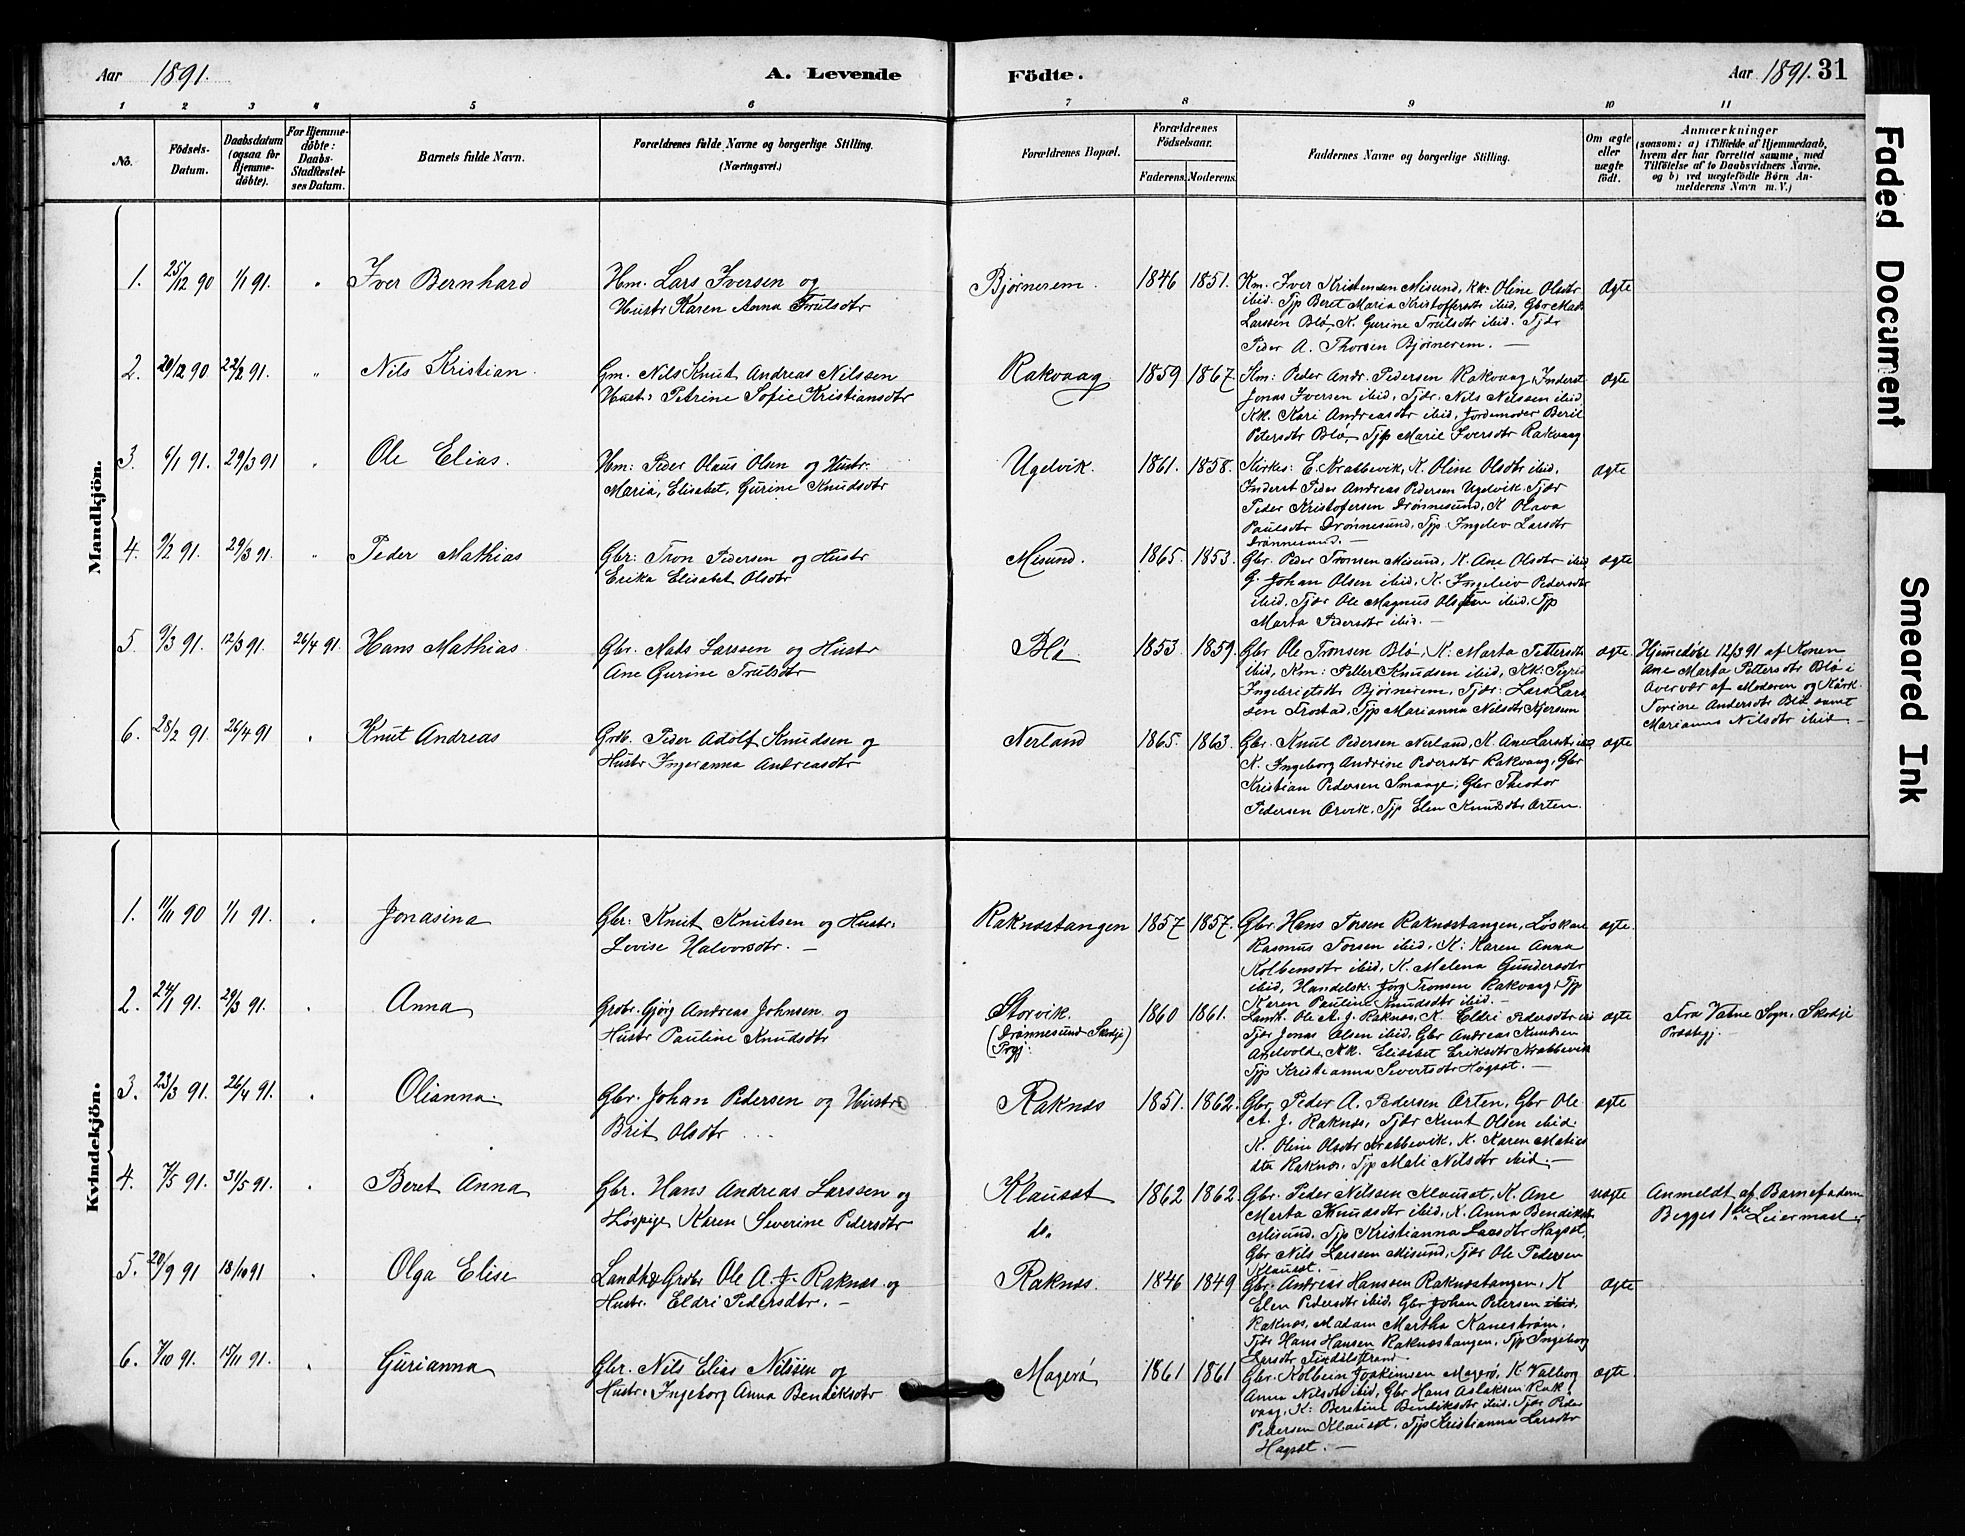 Aar 1891. A. Levende Födte. Aar 1891. 31
1 2 3 4 5 6 7 8 9 10 11
No. Födsels-Datum. Daabsdatum (ogsaa for Hjemme-döbte). For Hjemme-döbte: Daabs-Stadfæstel-ses Datum. Barnets fulde Navn. Forældrenes fulde Navne og borgerlige Stilling. (Næringsvei.) Forældrenes Bopæl. Forældrenes Födselsaar. Faderens. Moderens. Faddernes Navne og borgerlige Stilling. Om ægte eller uægte født.
Anmærkninger
(saasom: a) i Tilfælde af Hjemmedaab,
hvem der har forrettet samme, med
Tilföielse af to Daabsvidners Navne.
og b) ved uægtefödte Börn An-
melderens Navn m. V.)
Mandkjön.
1. 25/12 90 1/1 91. " Iver Bernhard
Hm. Lars Iversen og
Hustr Karen Anna Trulsdtr
Bjørnerem 1846 1851.
Km. Iver Kristensen Misund, KK: Oline Olsdtr
ibid. Tjp Beret Maria Kristoffersdtr ibid, Gbr Mads
Larssen Blø, K. Gurine Trulsdtr ibid. Tjdr
Peder A. Thorsen Bjørnerem. —
ægte
2. 20/12 90 22/2 91. " Nils Kristian.
Gm. Nils Knut Andreas Nilssen
Hust: Petrine Sofie Kristiansdtr
Rakvaag 1859 1867.
Km: Peder Andr. Pedersen Rakvaag, Inderst
Jonas Iversen ibid, Tjdr. Nils Nilssen ibid
KK. Kari Andreasdtr ibid, Jordemoder Beril
Petersdtr Blø, Tjp Marie Iversdtr Rakvaag
ægte
3. 6/1 91. 29/3 91 " Ole Elias.
Hm: Peder Olaus Olsen og Hustr.
Maria, Elisabet, Gurine Knudsdtr
Ugelvik. 1861. 1858.
Kirkes: E. Krabbevik, K. Oline Olsdtr ibid,
Inderst Peder Andreas Pedersen Ugelvik. Tjdr
Peder Kristofersen Drønnesund, K Olava
Paulsdtr Drønnesund, Tjp Ingelev Larsdtr
Drønnesund. —
ægte
4. 9/2 91. 29/3 91. " Peder Mathias
Gbr: Tron Pedersen og Hustr
Erika Elisabet Olsdtr
Misund. 1865. 1853.
Gbr. Peder Tronsen Misund, K. Ane Olsdtr ibid
G. Johan Olsen ibid, K. Ingeleiv Pedersdtr
ibid, Tjdr Ole Magnus Olsen ibid, Tjp
Marta Pedersdtr ibid. —
ægte
5. 9/3 91. 12/3 91. 26/4 91. Hans Mathias
Gbr. Mads Larssen og Hustr
Ane Gurine Trulsdtr
Blø 1853. 1859.
Gbr Ole Tronsen Blø, K. Marta Pettersdtr
ibid, Km: Petter Knudsen ibid, KK: Sigrid
Ingebrigtsdtr Bjørnerem, Tjdr: Lars Lars
sen Frostad, Tjp Marianna Nilsdtr
ægte
Hjemedøbt 12/3 91 af Konen
Ane Marta Pettersdtr Blø i
Overvær af Moderen og
Torine Andersdtr Blø samt
Marianne Nilsdtr ibid —
6. 28/2 91. 26/4 91 " Knut Andreas
Grdb. Peder Adolf Knudsen og
Hustr Ingeranna Andreasdtr
Nerland 1865. 1863.
Gbr. Knut Pedersen Nerland, K. Ane Larsdtr
K. Ingeborg Andrine Pedersdtr Rakvaag, Gbr
Kristian Pedersen Smaage, Gbr Theodor
Pedersen Orvik, Tjp Elen Knudsdtr Orten.
ægte
Kvindekjön.
1. 11/11 90 1/1 91. " Jonasina
Gbr: Knut Knutsen og Hustr:
Lovise Halvorsdtr. —
Raknæstangen 1857 1857.
Gbr. Hans Torsen Raknæstangen, Løskar
Rasmus Torsen ibid, K: Karen Anna
Kolbensdtr ibid, K. Malena Gundersdtr
ibid, Handelsk. Jørg Tronsen Rakvaag, Tjp
Karen Pauline Knudsdtr ibid. —
ægte.
2. 24/1 91. 29/3 91. " Anna
Grdbr. Gjørg Andreas Johnsen og
Hustr Pauline Knudsdtr
Storvik.
(Drønnesund Skodje)
Prgj:
1860 1861.
Landh. Ole A. J. Raknæs, K. Eldri Pedersdtr
Tjdr Jonas Olsen ibid, Gbr Andreas Knutsen
KK. Elisabet Eriksdtr Krabbevik
Tjp Kristianna Sivertsdtr Hagset. —
ægte
Fra Vatne Sogn, Skodje
Præstgj.
3. 23/3 91. 26/4 91. " Olianna.
Gbr. Johan Pedersen og Hustr
Brit Olsdtr
Raknæs 1851. 1862.
Gbr Peder A. Pedersen Orten, Gbr Ole
A. J. Raknæs, Tjdr Knut Olsen ibid
K. Oline Olsdtr Krabbevik, K. Karen Matias
dtr Raknæs, Tjp Mali Nilsdtr ibid. —
ægte
4. 7/5 91. 31/5 91. " Beret Anna
Gbr. Hans Andreas Larssen og
Løspige Karen Severine Pedersdtr
Klauset
do.
1862 1862
Gbr. Peder Nilssen Klauset, K. Ane
Marta Knudsdtr ibid, K. Anna Bendiksdtr
Misund, Tjp Kristianna Larsdtr Hagset,
Gbr Nils Larssen Misund, Tjdr Ole Pedersen
Klauset. —
uægte
Anmeldt af Barnefaderen
Begges 1ste Leiermaal.
5. 20/9 91 18/10 91 " Olga Elise
Landh. & Grdbr Ole A. J. Raknæs og
Hustr. Eldri Pedersdtr. —
Raknæs. 1846 1849
Gbr. Andreas Hanssen Raknæstangen, K
Elen Pedersdtr ibid, Gbr Johan Petersen ibid,
Raknæs, Madam Martha Kanestrøm,
Tjdr Hans Hansen Raknæstangen, Tjp Ingeborg
Larsdtr Tindalstrand
ægte
6. 7/10 91. 15/11 91. " Gurianna
Gbr. Nils Elias Nilssen og
Hustr. Ingeborg Anna Bendiksdtr
Magerø 1861 1861
Gbr. Kolbein Joakimsen Magerø, K. Valborg
Anna Nilsdtr ibid, Gbr Hans Aslaksen Rak
vaag, K: Beretine Bendiksdtr ibid, Tjdr Peder
Pedersen Klauset, Tjp Kristianna Larsdtr
Hagset. —
ægte.
Faded Document
Smeared Ink